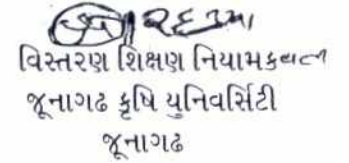 વિસ્તરણ શિક્ષણ નિયામકવતી
જૂનાગઢ કૃષિ યુનિવર્સિટી
જૂનાગઢ